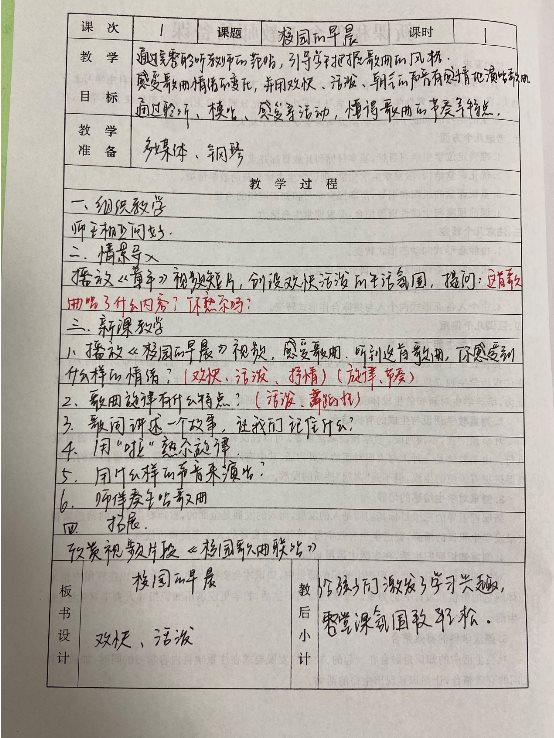 课次 1 课题 校园的早晨 课时 1
教学目标
通过完整聆听教师的范唱，引导学生把握歌曲的风格.
感受歌曲情绪的变化，并用欢快、活泼、朝气的声音有感情地演唱歌曲
通过聆听、模唱、感受等活动，懂得歌曲的节奏等特点.
教学准备 多媒体、钢琴
教学过程
一、组织教学
师生相互问好.
二、情景导入
播放《青春》视频短片，创设欢快活泼的生活氛围，提问：这首歌
曲唱了什么内容？你想不吗？
三、新课教学
1、播放《校园的早晨》视频，感受歌曲.听到这首歌曲，你感受到
什么样的情绪？(欢快、活泼、抒情)(旋律、节奏)
2、歌曲旋律有什么特点？(活泼、)
3、歌词讲述一个故事，让我们记住什么？
4、用"啦"熟悉旋律.
5、用什么样的声音来演唱？
6、师伴奏生唱歌曲
四、拓展.
欣赏视频片段《校园歌曲联唱》
板书设计
校园的早晨
欢快、活泼
教后小计
给孩子们激发了学习兴趣，
整堂课氛围较轻松.